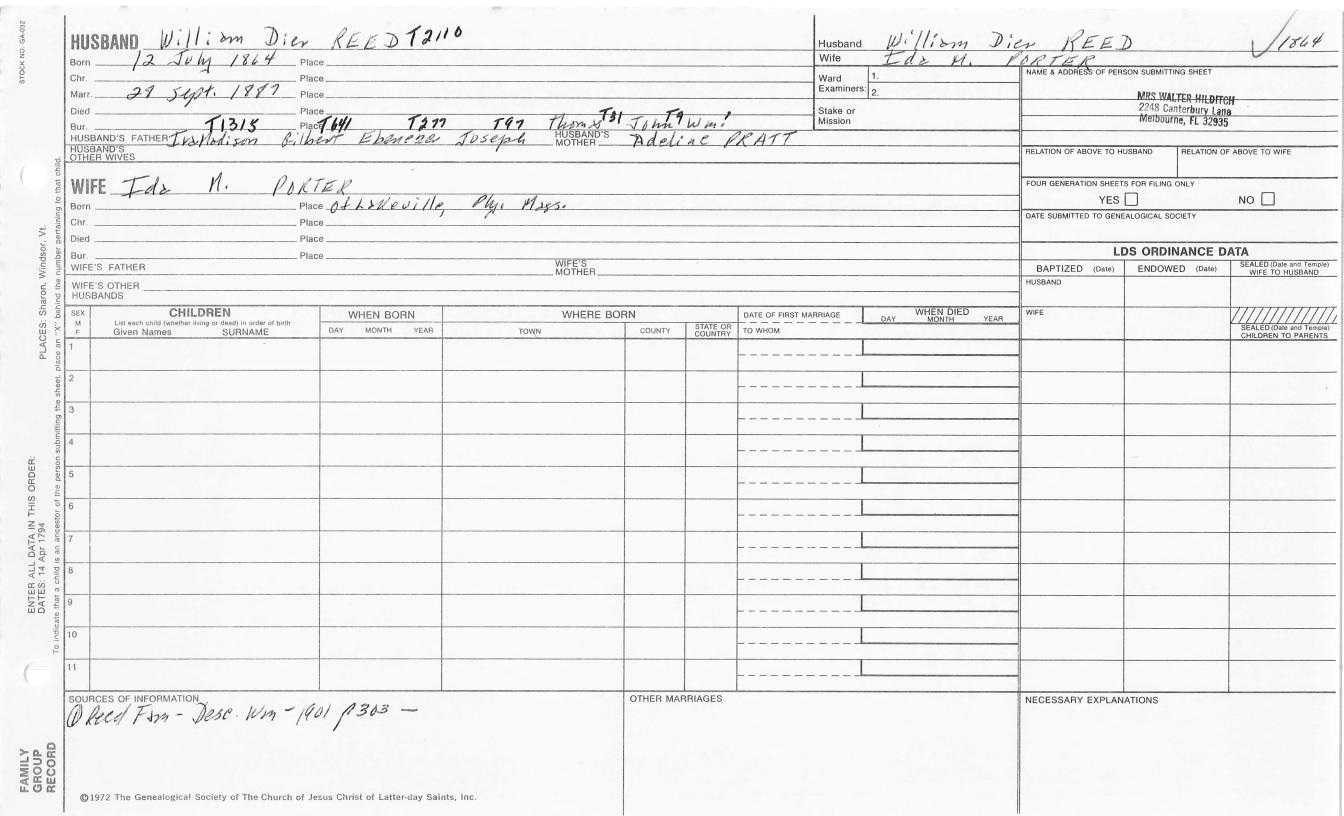 STOCK NO. GA-032
HUSBAND William Dier REED T2110
Born 12 July 1864 Place
Chr. Place
Marr. 29 Sept. 1887 Place
Died Place
Bur. T1315 Place T641 T277 T97 Thomas T31 John T9 Wm!
HUSBAND'S FATHER Ira Madison Gilbert Ebenezer Joseph HUSBAND'S MOTHER Adeline PRATT
HUSBAND'S OTHER WIVES
WIFE Ida M. PORTER
Born Place of Lakeville, Ply. Mass.
Chr. Place
Died Place
Bur. Place
WIFE'S FATHER WIFE'S MOTHER
WIFE'S OTHER HUSBANDS
Husband William Dier REED 1864
Wife Ida M. PORTER
Ward Examiners: 1.
2.
Stake or Mission
NAME & ADDRESS OF PERSON SUBMITTING SHEET
MRS WALTER HILDITCH
2248 Canterbury Lane
Melbourne, FL 32935
RELATION OF ABOVE TO HUSBAND RELATION OF ABOVE TO WIFE
FOUR GENERATION SHEETS FOR FILING ONLY
YES NO
DATE SUBMITTED TO GENEALOGICAL SOCIETY
LDS ORDINANCE DATA
BAPTIZED (Date) ENDOWED (Date) SEALED (Date and Temple) WIFE TO HUSBAND
HUSBAND
WIFE
SEALED (Date and Temple) CHILDREN TO PARENTS
SEX M F
CHILDREN
List each child (whether living or dead) in order of birth
Given Names SURNAME
WHEN BORN
DAY MONTH YEAR
WHERE BORN
TOWN COUNTY STATE OR COUNTRY
DATE OF FIRST MARRIAGE
TO WHOM
WHEN DIED
DAY MONTH YEAR
1
2
3
4
5
6
7
8
9
10
11
SOURCES OF INFORMATION
① Reed Fam - Desc. Wm - 1901 p303 —
OTHER MARRIAGES
NECESSARY EXPLANATIONS
©1972 The Genealogical Society of The Church of Jesus Christ of Latter-day Saints, Inc.
FAMILY GROUP RECORD
ENTER ALL DATA IN THIS ORDER:
DATES: 14 Apr 1794 PLACES: Sharon, Windsor, Vt.
To indicate that a child is an ancestor of the person submitting the sheet, place an "X" behind the number pertaining to that child.